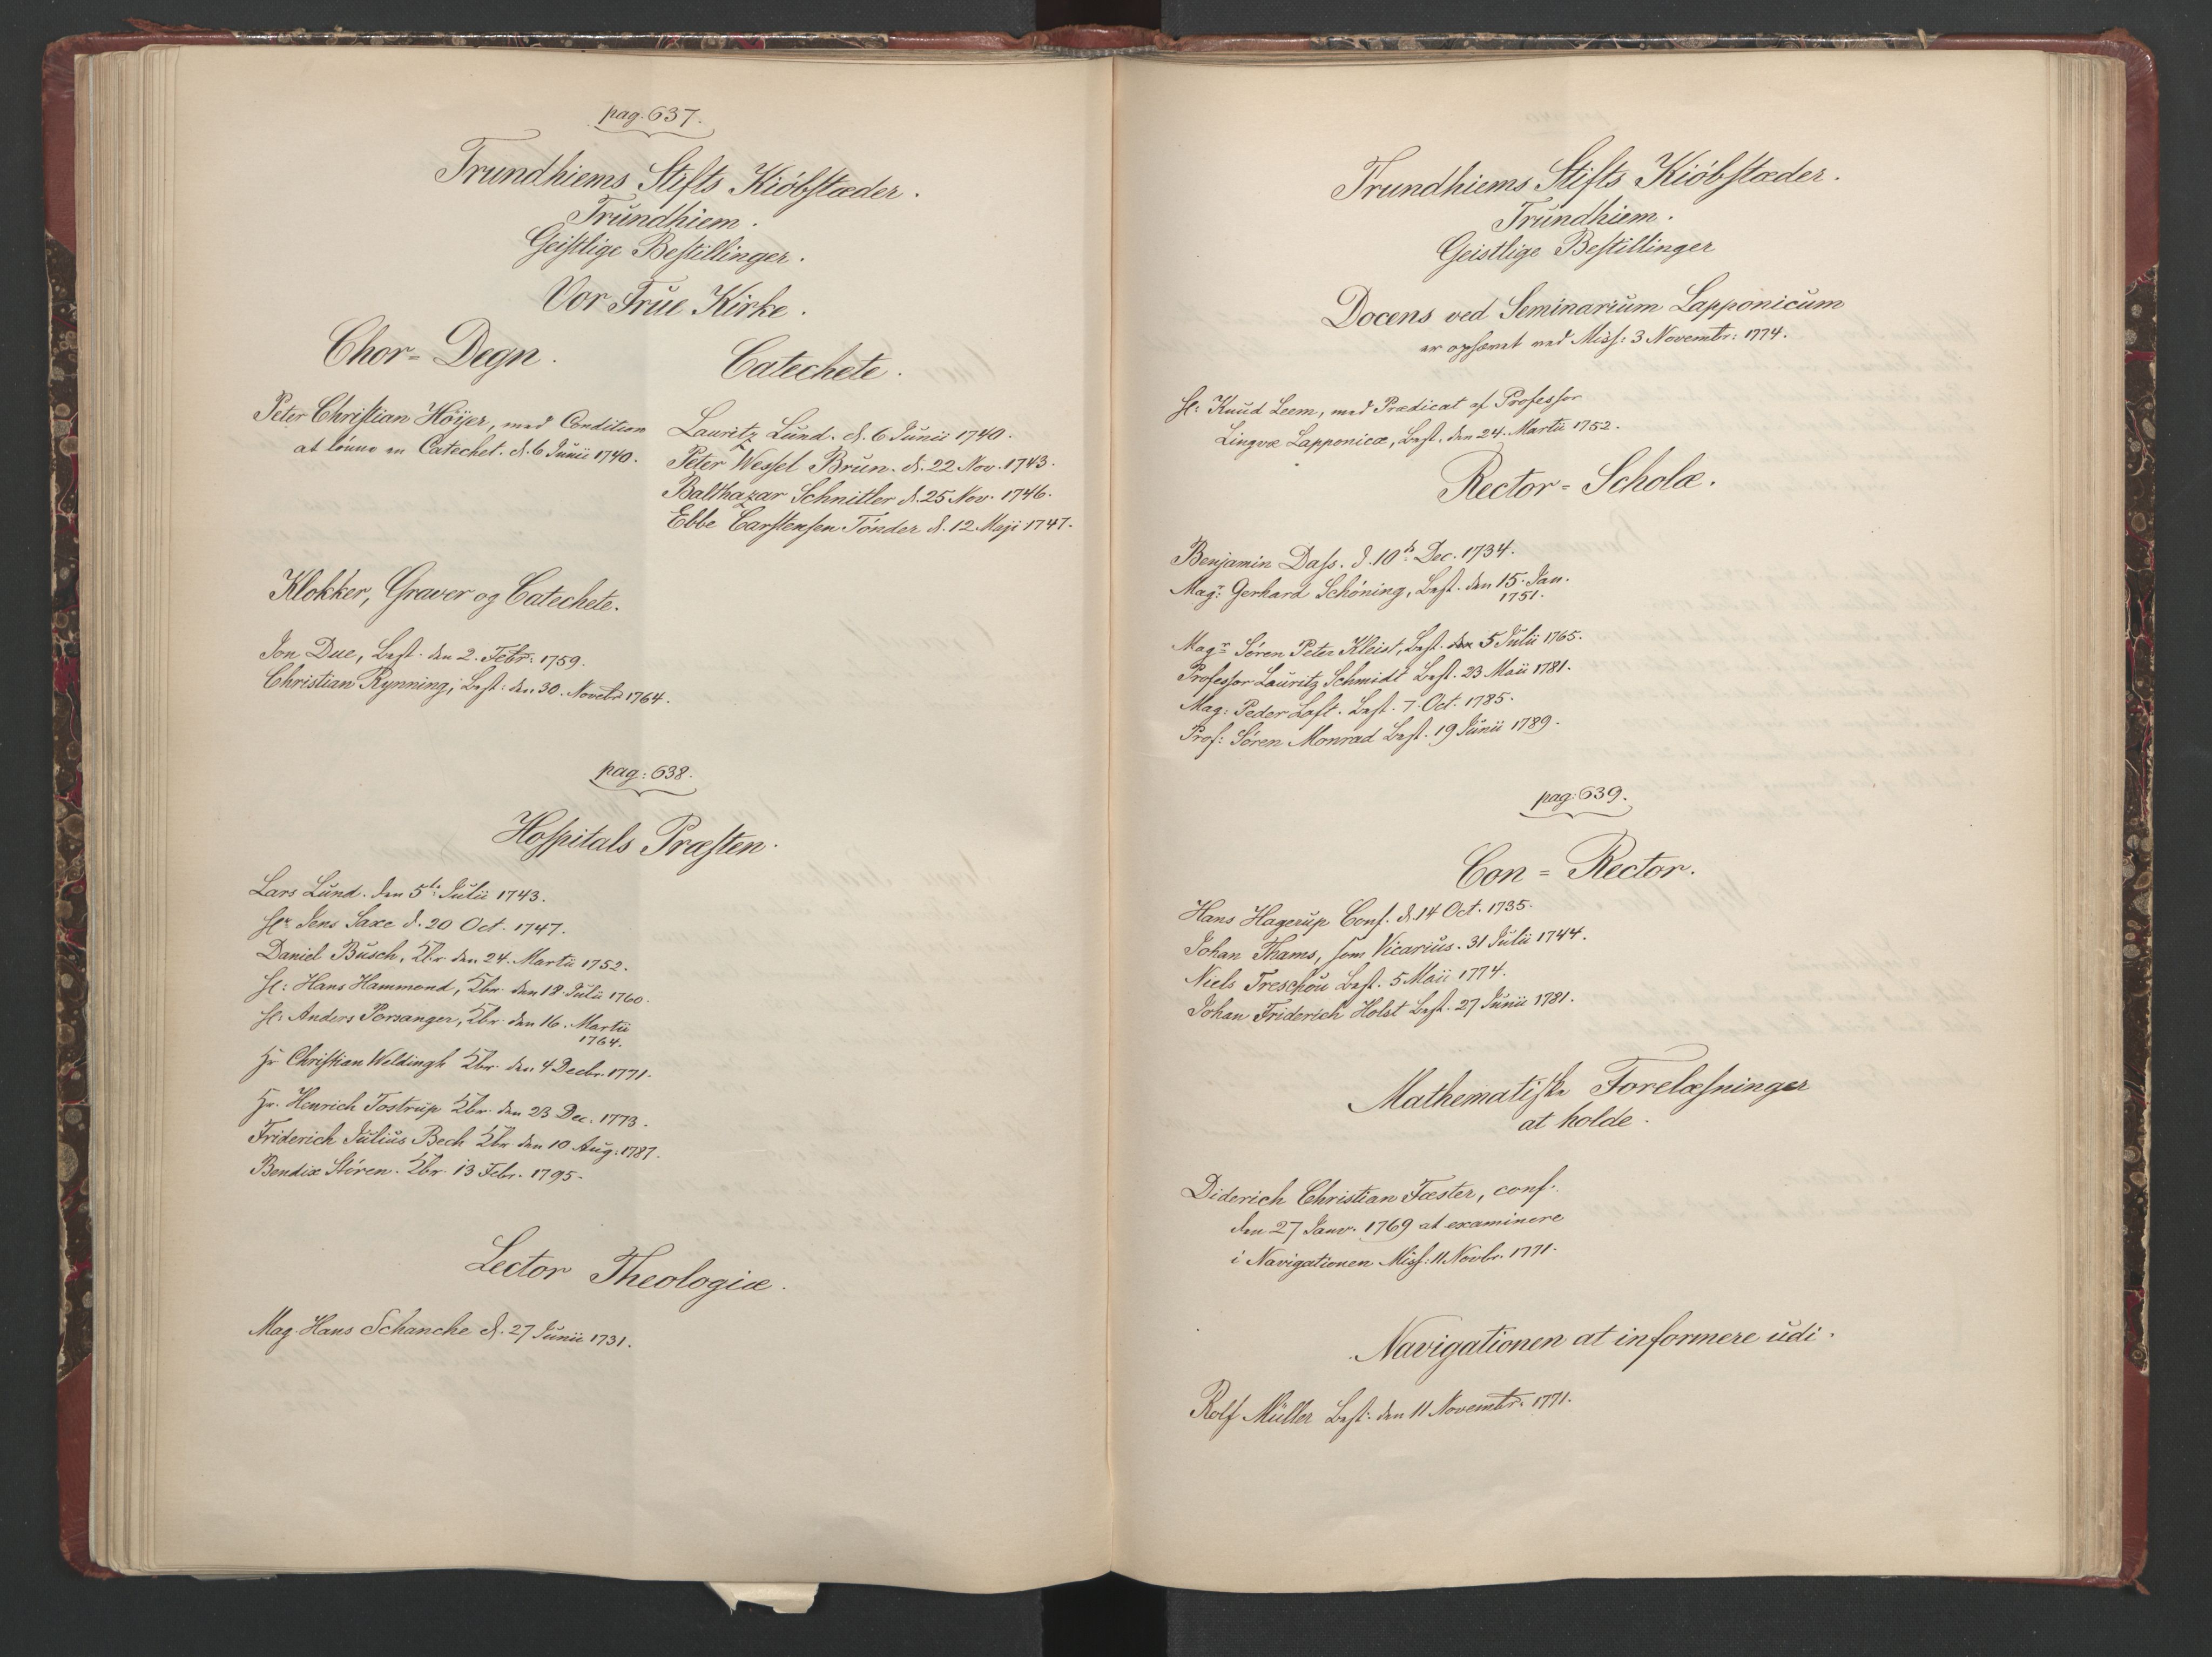 pag. 637.
Trundhiems Stifts Kiöbstæder.
Trundhiem.
Geistlige Bestillinger.
Vor Frue Kirke.
Chor=Degn.
Peter Christian Höijer, med Condition
at lönne en Catechet. d. 6 Junii 1740.
Catechete.
Lauritz Lund. d. 6 Junii 1740.
Peter Wessel Brun. d. 22 Nov. 1743.
Balthazar Schnitler d. 25 Nov. 1746.
Ebbe Carstensen Tönder d. 12 Maji 1747.
Klokker, Graver og Catechete.
Jon Due, Best. den 2. Febr. 1759.
Christian Rynning, Best: den 30. Novebr 1764.
pag: 638.
Hospitals Præsten.
Lars Lund. den 5te Julii 1743.
Hr. Jens Saxe d. 20 Oct. 1747.
Daniel Busch, Kbr den 24. Martii 1752.
Hr: Hans Hammond, Kbr. den 18. Julii 1760.
Hr: Anders Porsanger, Kbr. den 16. Martii
1764.
Hr Christian Weldingh Kbr. den 4 Decbr. 1771.
Hr. Henrich Tostrup Kbr. den 23 Dec. 1773.
Friderich Julius Bech Kbr. den 10 Aug: 1787.
Bendix Stören. Kbr. 13 Febr. 1795.
Lector Theologiæ.
Mag. Hans Schanche d. 27 Junii 1731.
Trundhiems Stifts Kiöbstæder.
Trundhiem.
Geistlige Bestillinger
Docens ved Seminarium Lapponicum
er ophævet ved Miss: 3 Novembr: 1774.
Hr: Knud Leem, med Prædicat af Professor
Lingvæ Lapponicæ, Best. den 24. Martii 1752.
Rector=Scholæ.
Benjamin Dass. d. 10de Dec. 1734.
Magr: Gerhard Schöning, Best. den 15. Jan.
1751.
Magr Sören Peter Kleist, Best. den 5 Julii 1765.
Professor Lauritz Schmidt Best. 23 Maii 1781.
Mag: Peder Loft. Best. 7. Oct: 1785.
Prof: Sören Monrad Best. 19 Junii 1789.
pag: 639.
Con=Rector.
Hans Hagerup Conf. d. 14 Oct. 1735.
Johan Thams, som Vicarius. 31 Julii 1744.
Niels Treschou Best. 5 Maii 1774.
Johan Friderich Holst Best. 27 Junii 1781.
Mathematiske Forelæsninger
at holde.
Diderich Christian Fæster, conf.
den 27 Janv. 1769 at examinere
i Navigationen Miss: 11 Novbr. 1771.
Navigationen at informere udi.
Rolf Müller Best: den 11 Novembr. 1771.